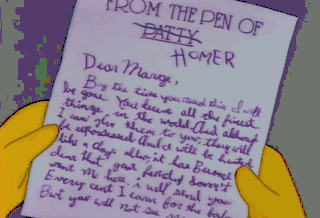 FROM THE PEN OF
PATTY
HOMER
Dear Marge,
By the time you read this I will
be gone. You deserve all the finest
things in the world And although
I can give them to you they will
be repossessed And I will be hunted
like a dog. also, it has Become
clear that your family doesn't
want me here. i will send you
Every cent I earn for the baby
But you will not see